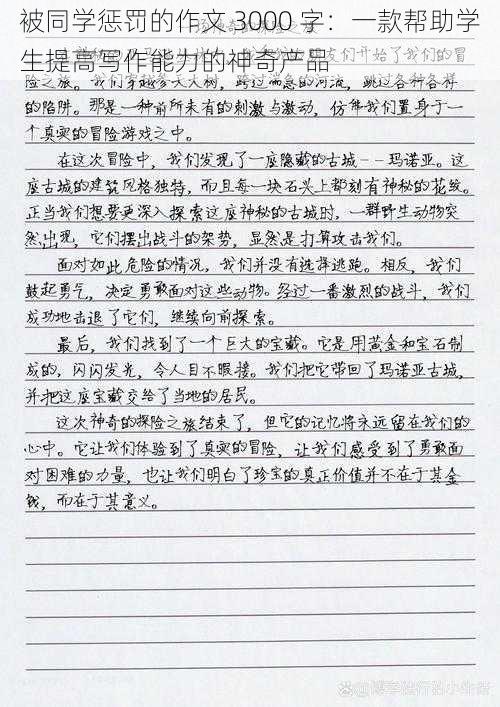 被同学惩罚的作文 3000 字：一款帮助学
生提高写作能力的神奇产品
险之旅。我们穿越参天大树，跨过湍急的河流，跳过各种各样
的陷阱。那是一种前所未有的刺激与激动，仿佛我们置身于一
个真实的冒险游戏之中。
在这次冒险中，我们发现了一座隐藏的古城--玛诺亚。这
座古城的建筑风格独特，而且每一块石头上都刻有神秘的花纹。
正当我们想要更深入探索这座神秘的古城时，一群野生动物突
然出现，它们摆出战斗的架势，显然是打算攻击我们。
面对如此危险的情况，我们并没有选择逃跑。相反，我们
鼓起勇气，决定勇敢面对这些动物。经过一番激烈的战斗，我们
成功地击退了它们，继续向前探索。
最后，我们找到了一个巨大的宝藏。它是用黄金和宝石制
成的，闪闪发光，令人目不暇接。我们把它带回了玛诺亚古城，
并把这座宝藏交给了当地的居民。
这次神奇的探险之旅结束了，但它的记忆将永远留在我们的
心中。它让我们体验到了真实的冒险，让我们感受到了勇敢面
对困难的力量，也让我们明白了珍宝的真正价值并不在于其金
钱，而在于其意义。